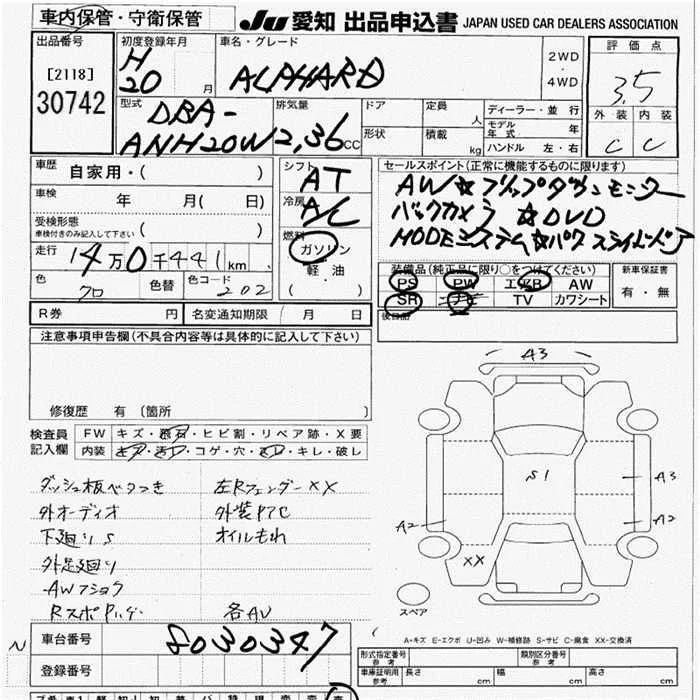 車内保管・守衛保管
JU 愛知 出品申込書 JAPAN USED CAR DEALERS ASSOCIATION
出品番号
[2118]
30742
初度登録年月
H
20 月
車名・グレード
ALPHARD
2WD
・
4WD
評価点
3.5
外装 内装
C C
型式
DBA-
ANH20W
排気量
2,36 cc
ドア
定員
人
形状
積載
kg
ディーラー・並行
モデル年式 年
ハンドル 左・右
車歴 自家用・( )
車検 年 月( 日)
受検形態
車検付きのみ記入して下さい ( )
走行 14万0千441km
色 クロ 色替 色コード 202
シフト
AT
冷房
AC
燃料
ガソリン
・軽油・
( )
セールスポイント(正常に機能するものに限ります)
AW☆フリップダウンモニター
バックカメラ ☆DVD
装備品(純正品に限り○をつけてください)
PS PW エアB AW
SR ナビ TV カワシート
新車保証書
有・無
後日部
R券 円 名変通知期限 / 月 日
注意事項申告欄(不具合内容等は具体的に記入して下さい)
修復歴 有 〔箇所 〕
検査員
記入欄
FW キズ・飛石・ヒビ割・リペア跡・X要
内装 キズ・汚レ・コゲ・穴・キレ・破レ
ダッシュ板ベタつき
外オーディオ
下廻りS
外足廻り
AWフショク
左Rフェンダー××
オイルもれ
各AU
A3
S1
A3
A2
A2
XX
スペア
A-キズ E-エクボ U-凹み W-補修跡 S-サビ C-腐食 XX-交換済
N
車台番号 8030347
登録番号
型式指定番号
参考
類別区分番号
参考
車庫証明用
参考
長さ cm 幅 cm 高さ cm